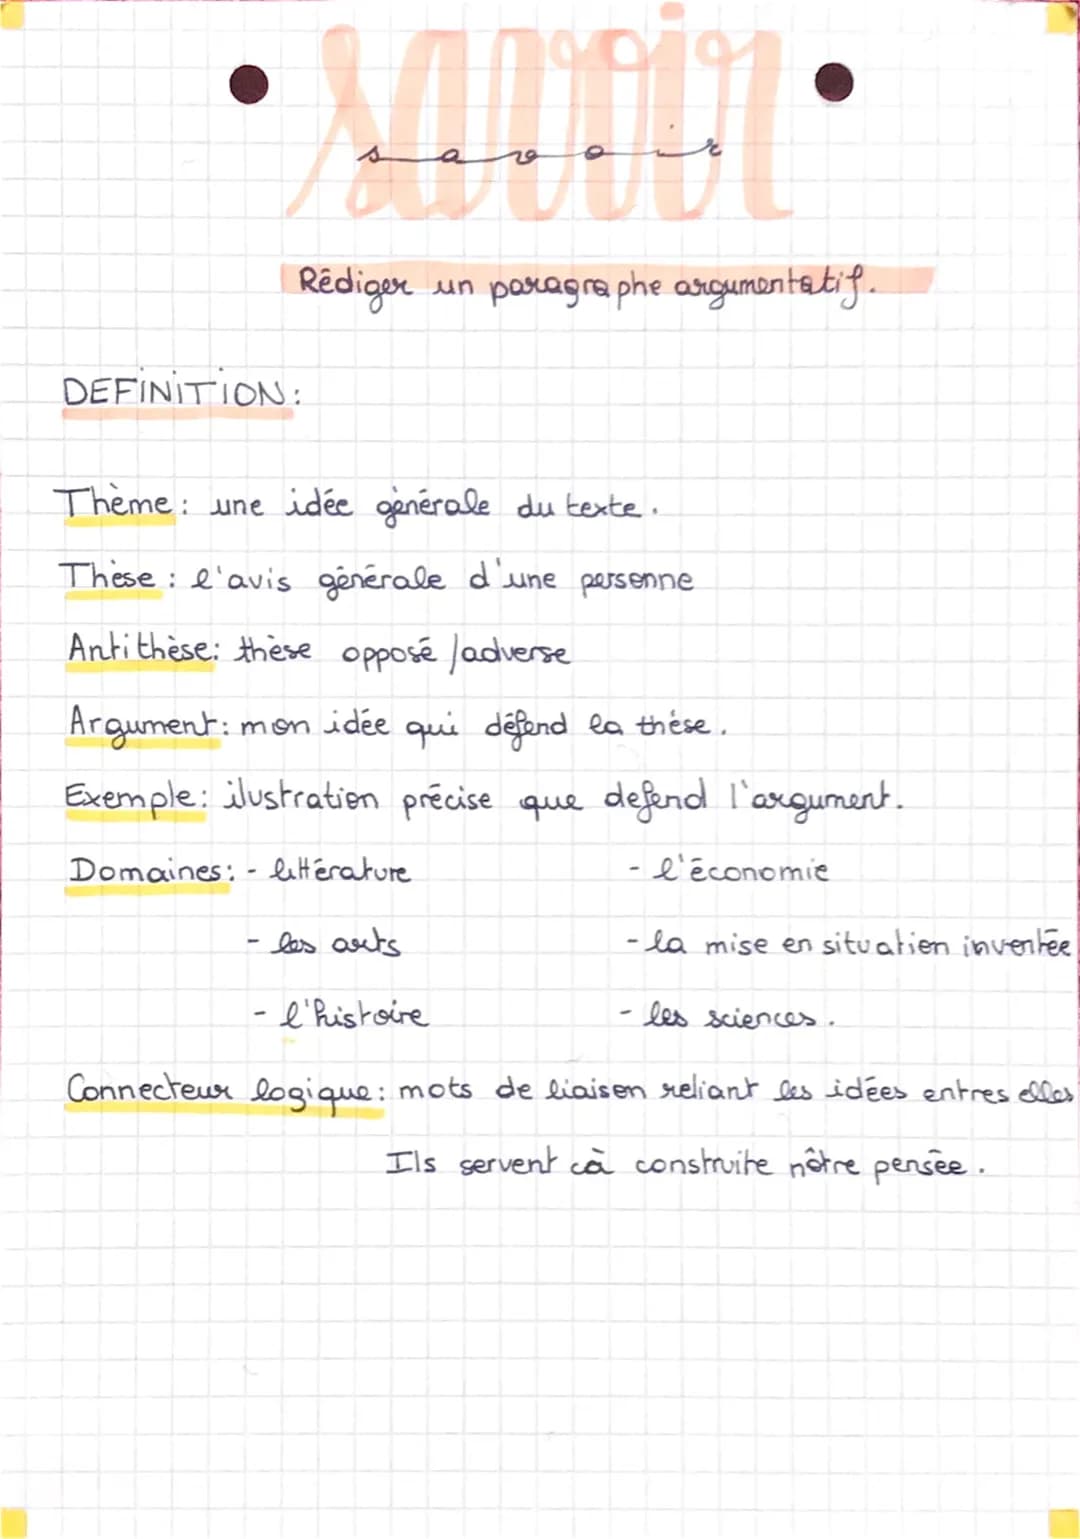 savoir
savoir
Rédiger un paragraphe argumentatif.
DEFINITION:
Thème: une idée générale du texte.
Thèse: l'avis générale d'une personne
Antithèse: thèse opposé /adverse
Argument: mon idée qui défend la thèse.
Exemple: ilustration précise que defend l'argument.
Domaines: - littérature - l'économie
- les arts - la mise en situation inventée
- l'histoire - les sciences.
Connecteur logique: mots de liaison reliant les idées entres elles
Ils servent à construite nôtre pensée.